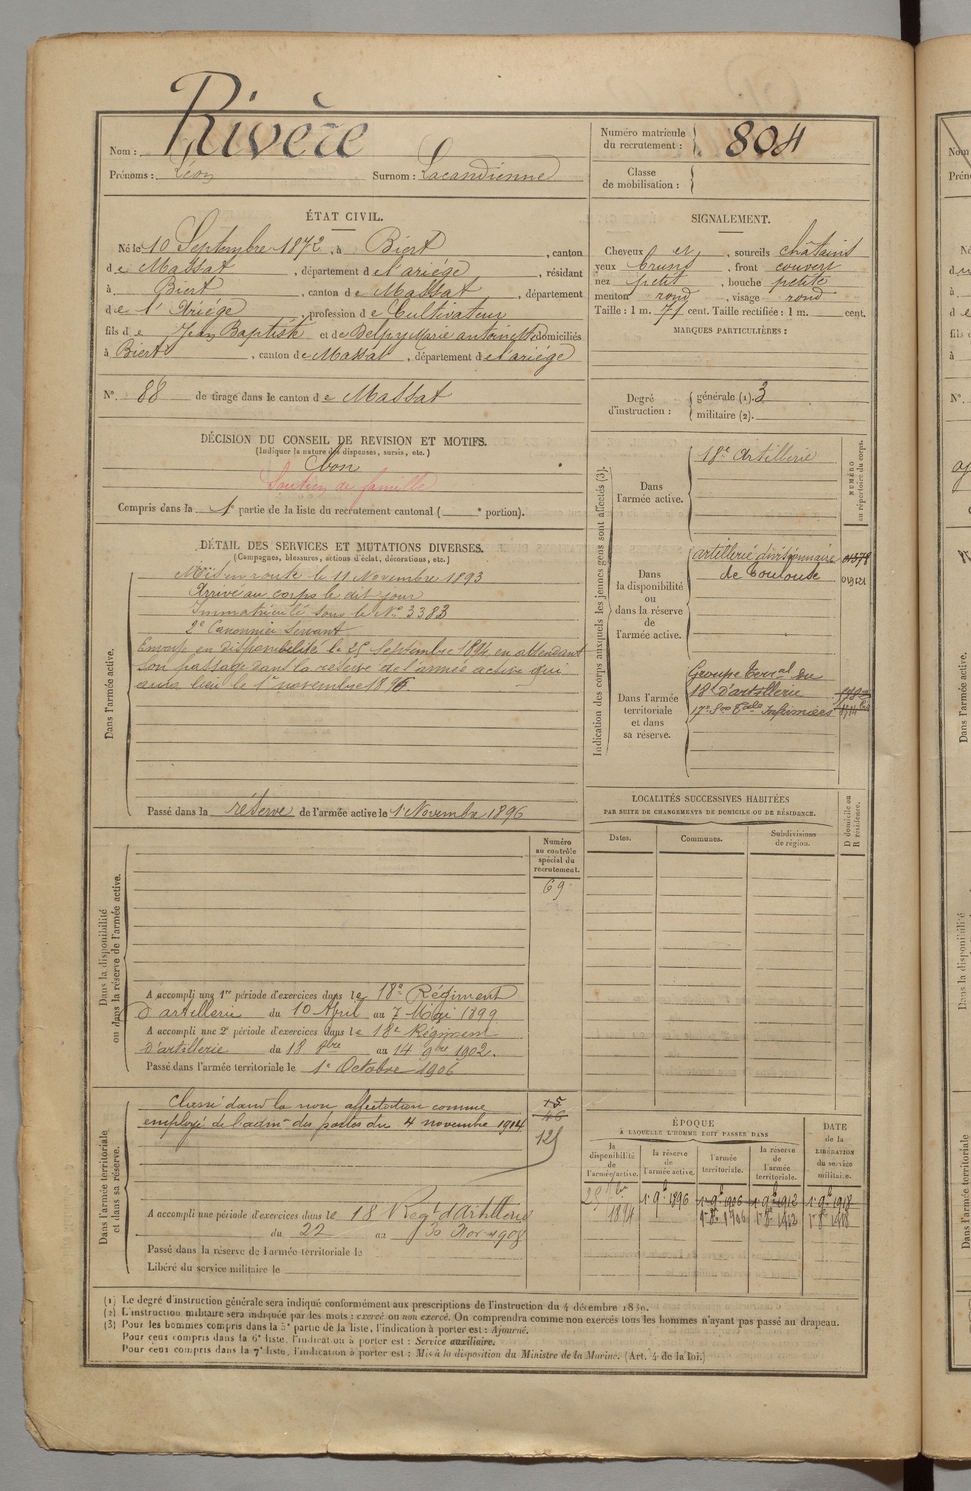 Nom : Rivère
Prénoms : Léon Surnom : Lacandienne
Numéro matricule du recrutement : 804
Classe de mobilisation :
ÉTAT CIVIL.
Né le 10 Septembre 1872, à Biert, canton
de Massat, département de l'ariége, résidant
à Biert, canton de Massat, département
de l'Ariége, profession de Cultivateur
fils de Jean Baptiste et de Delpy Marie antoinette domiciliés
à Biert, canton de Massat, département de l'ariége
N°. 88 de tirage dans le canton de Massat
SIGNALEMENT.
Cheveux et, sourcils châtains
yeux bruns, front couvert
nez petit, bouche petite
menton rond, visage rond
Taille : 1 m. 71 cent. Taille rectifiée : 1 m. cent.
MARQUES PARTICULIÈRES :
Degré d'instruction : générale (1). 3
militaire (2).
DÉCISION DU CONSEIL DE REVISION ET MOTIFS.
(Indiquer la nature des dispenses, sursis, etc.)
bon
Soutien de famille
Compris dans la 1e partie de la liste du recrutement cantonal ( e portion).
DÉTAIL DES SERVICES ET MUTATIONS DIVERSES.
(Campagnes, blessures, actions d'éclat, décorations, etc.)
Dans l'armée active.
Mis en route le 11 Novembre 1893
Arrivé au corps le dit jour
Immatriculé sous le N° 3383
2e Canonnier Servant
Envoyé en disponibilité le 25 Septembre 1894 en attendant
son passage dans la réserve de l'armée active qui
aura lieu le 1er novembre 1896.
Passé dans la réserve de l'armée active le 1er Novembre 1896
Indication des corps auxquels les jeunes gens sont affectés (3).
NUMÉRO au répertoire du corps.
Dans l'armée active.
18e Artillerie
Dans la disponibilité ou dans la réserve de l'armée active.
artillerie divisionnaire
de Toulouse
Dans l'armée territoriale et dans sa réserve.
Groupe terr.al du
18e d'artillerie
17e Son Tale Infirmiers
LOCALITÉS SUCCESSIVES HABITÉES
PAR SUITE DE CHANGEMENTS DE DOMICILE OU DE RÉSIDENCE.
Dates. Communes. Subdivisions de région.
D domicile ou R résidence.
Dans la disponibilité ou dans la réserve de l'armée active.
Numéro au contrôle spécial du recrutement.
69
A accompli une 1re période d'exercices dans le 18e Régiment
d'artillerie du 10 April au 7 Mai 1899
A accompli une 2e période d'exercices dans le 18e Régiment
d'artillerie du 18 8bre au 14 9bre 1902.
Passé dans l'armée territoriale le 1er Octobre 1906
Dans l'armée territoriale et dans sa réserve.
Classé dans la non affectation comme
employé de l'admon des postes du 4 novembre 1914
125
A accompli une période d'exercices dans le 18 Regt d'Artillerie
du 22 au 30 Nov 1908
Passé dans la réserve de l'armée territoriale le
Libéré du service militaire le
ÉPOQUE
À LAQUELLE L'HOMME DOIT PASSER DANS
la disponibilité de l'armée active.
la réserve de l'armée active.
l'armée territoriale.
la réserve de l'armée territoriale.
DATE de la LIBÉRATION du service militaire.
25 7bre 1894
1er 9b 1896
1er 9b 1906 1er 9b 1912 1er 9b 1918
1er 8b 1906 1er 8b 1912 1er 8b 1918
(1) Le degré d'instruction générale sera indiqué conformément aux prescriptions de l'instruction du 4 décembre 1889.
(2) L'instruction militaire sera indiquée par les mots : exercé ou non exercé. On comprendra comme non exercés tous les hommes n'ayant pas passé au drapeau.
(3) Pour les hommes compris dans la 5e partie de la liste, l'indication à porter est : Ajourné.
Pour ceux compris dans la 6e liste, l'indication à porter est : Service auxiliaire.
Pour ceux compris dans la 7e liste, l'indication à porter est : Mis à la disposition du Ministre de la Marine. (Art. 4 de la loi.)